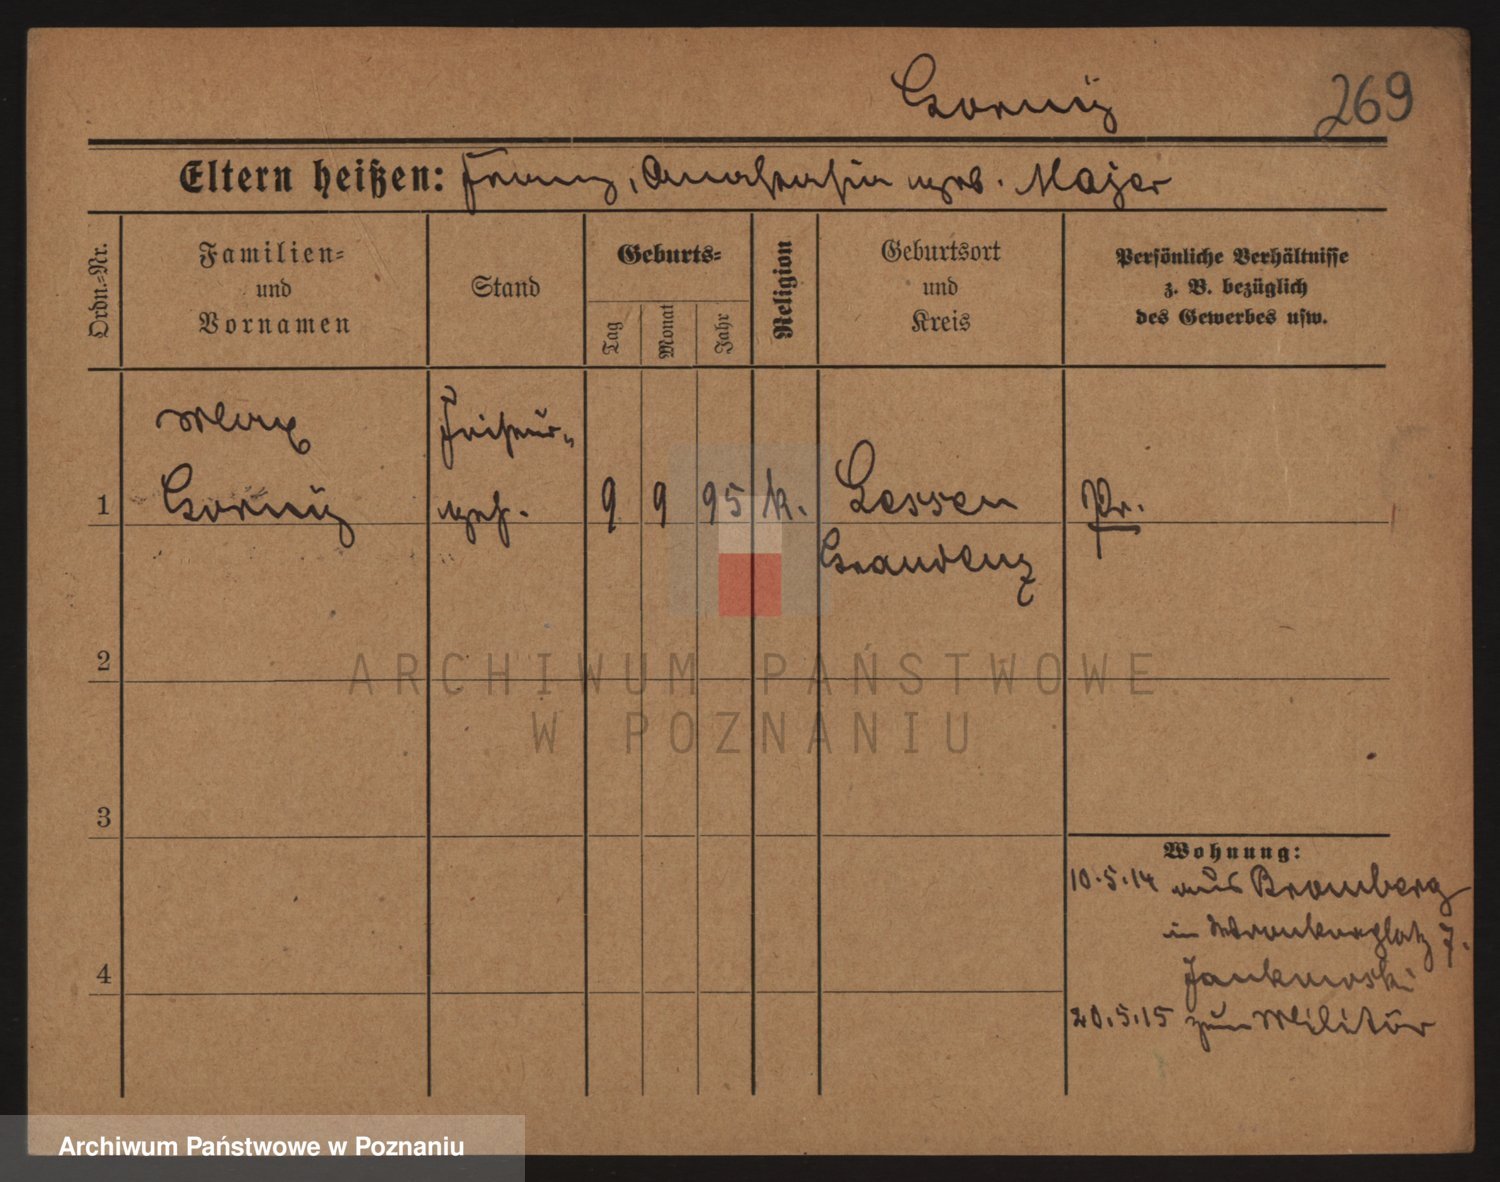 Gorny 269
Eltern heißen: Franz, Anastasia geb. Majer
Ordn.-Nr.
Familien-
und
Vornamen
Stand
Geburts-
Tag
Monat
Jahr
Religion
Geburtsort
und
Kreis
Persönliche Verhältnisse
z. B. bezüglich
des Gewerbes usw.
Max Friseur-
1 Gorny geh. 9 9 95 k. Lessen Pr.
Graudenz
2
ARCHIWUM PAŃSTWOWE
W POZNANIU
3
Wohnung:
10.5.14 aus Bromberg
in Wronkerplatz 7.
4
Jankowski
20.5.15 zum Militär
Archiwum Państwowe w Poznaniu